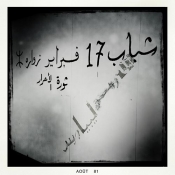 شباب 17 فبراير زوارة
ثورة الأحرار
AOÛT 01